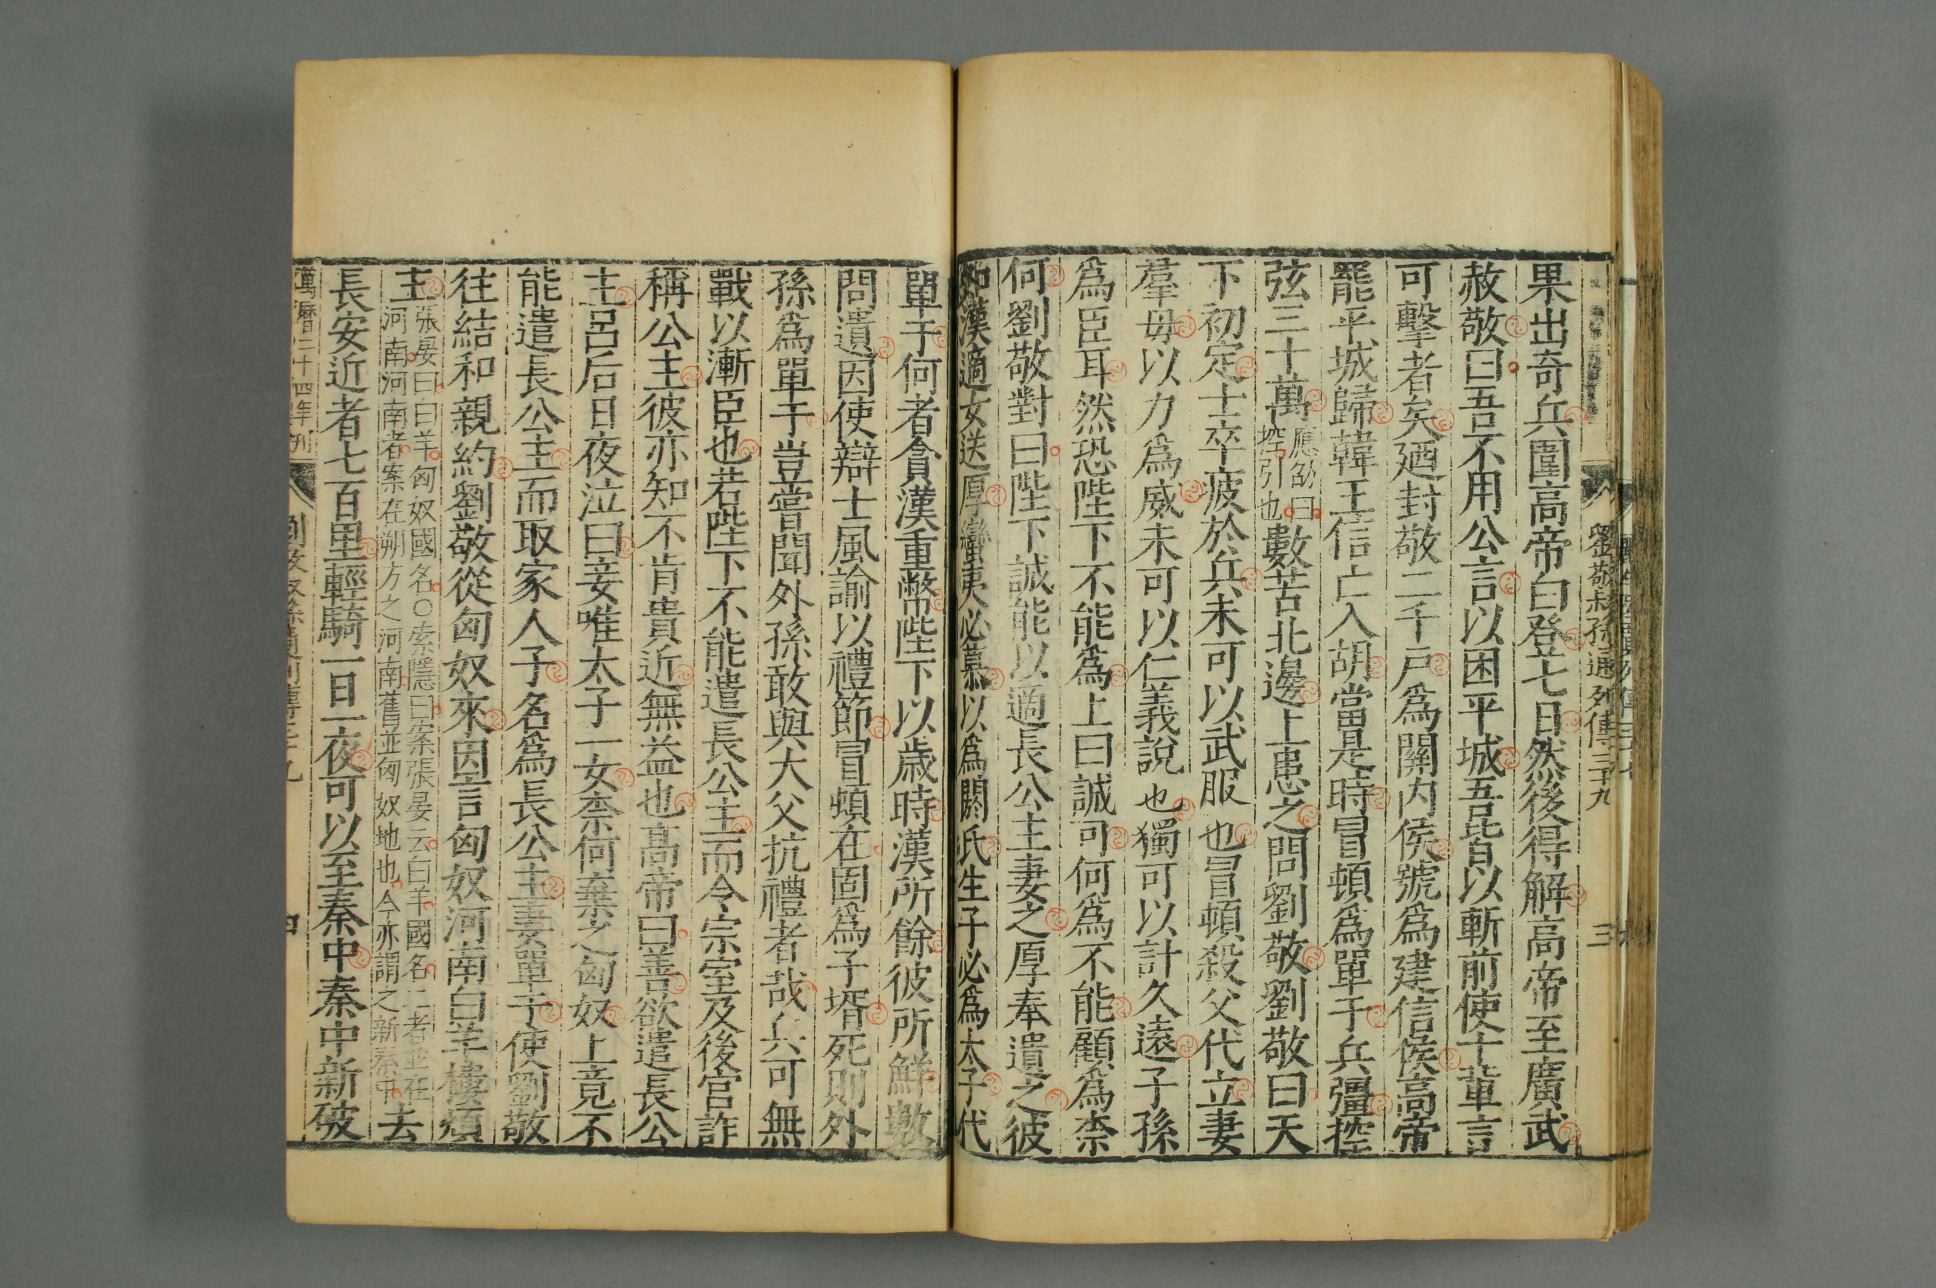 劉敬叔孫通列傳三十九
三
果出奇兵圍高帝白登七日然後得解高帝至廣武
赦敬曰吾不用公言以困平城吾皆以斬前使十輩言
可擊者矣廼封敬二千戶爲關內侯號爲建信侯高帝
罷平城歸韓王信亡入胡當是時冒頓爲單于兵彊控
弦三十萬應劭曰控引也數苦北邊上患之問劉敬劉敬曰天
下初定士卒疲於兵未可以武服也冒頓殺父代立妻
羣母以力爲威未可以仁義說也獨可以計久遠子孫
爲臣耳然恐陛下不能爲上曰誠可何爲不能顧爲柰
何劉敬對曰陛下誠能以適長公主妻之厚奉遺之彼
知漢適女送厚蠻夷必慕以爲閼氏生子必爲太子代
單于何者貪漢重幣陛下以歲時漢所餘彼所鮮數
問遺因使辯士風諭以禮節冒頓在固爲子壻死則外
孫爲單于豈嘗聞外孫敢與大父抗禮者哉兵可無
戰以漸臣也若陛下不能遣長公主而令宗室及後宮詐
稱公主彼亦知不肯貴近無益也高帝曰善欲遣長公
主呂后日夜泣曰妾唯太子一女柰何棄之匈奴上竟不
能遣長公主而取家人子名爲長公主妻單于使劉敬
往結和親約劉敬從匈奴來因言匈奴河南白羊樓煩
王張晏曰白羊匈奴國名○索隱曰案張晏云白羊國名二者並在河南河南者案在朔方之河南舊並匈奴地也今亦謂之新秦中去
長安近者七百里輕騎一日一夜可以至秦中秦中新破
萬曆二十四年刊
劉敬叔孫通列傳三十九
四